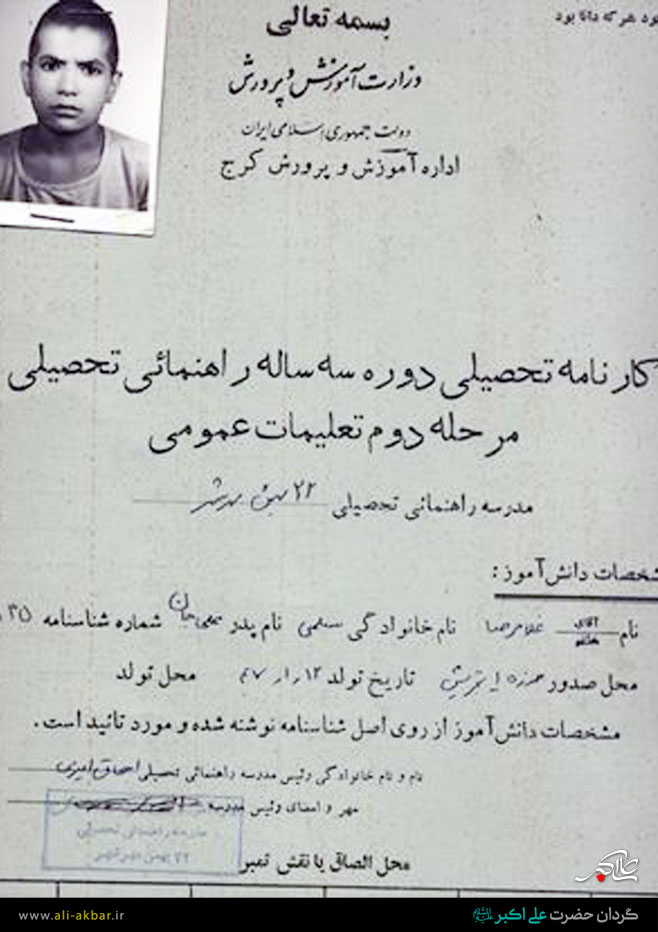 بسمه تعالی
ود هر که دانا بود
وزارت آموزش و پرورش
دولت جمهوری اسلامی ایران
اداره آموزش و پرورش کرج
کارنامه تحصیلی دوره سه ساله راهنمائی تحصیلی
مرحله دوم تعلیمات عمومی
مدرسه راهنمائی تحصیلی ۲۲ بهمن مهرشهر
شخصات دانش آموز:
نام آقای خانم غلامرضا نام خانوادگی نام پدر شماره شناسنامه ۳۵
محل صدور تاریخ تولد محل تولد
مشخصات دانش آموز از روی اصل شناسنامه نوشته شده و مورد تائید است.
نام و نام خانوادگی رئیس مدرسه راهنمائی تحصیلی
مهر و امضای رئیس مدرسه
مدرسه راهنمائی تحصیلی
۲۲ بهمن مهرشهر
محل الصاق یا نقش تمبر
www.ali-akbar.ir
گردان حضرت علی اکبر